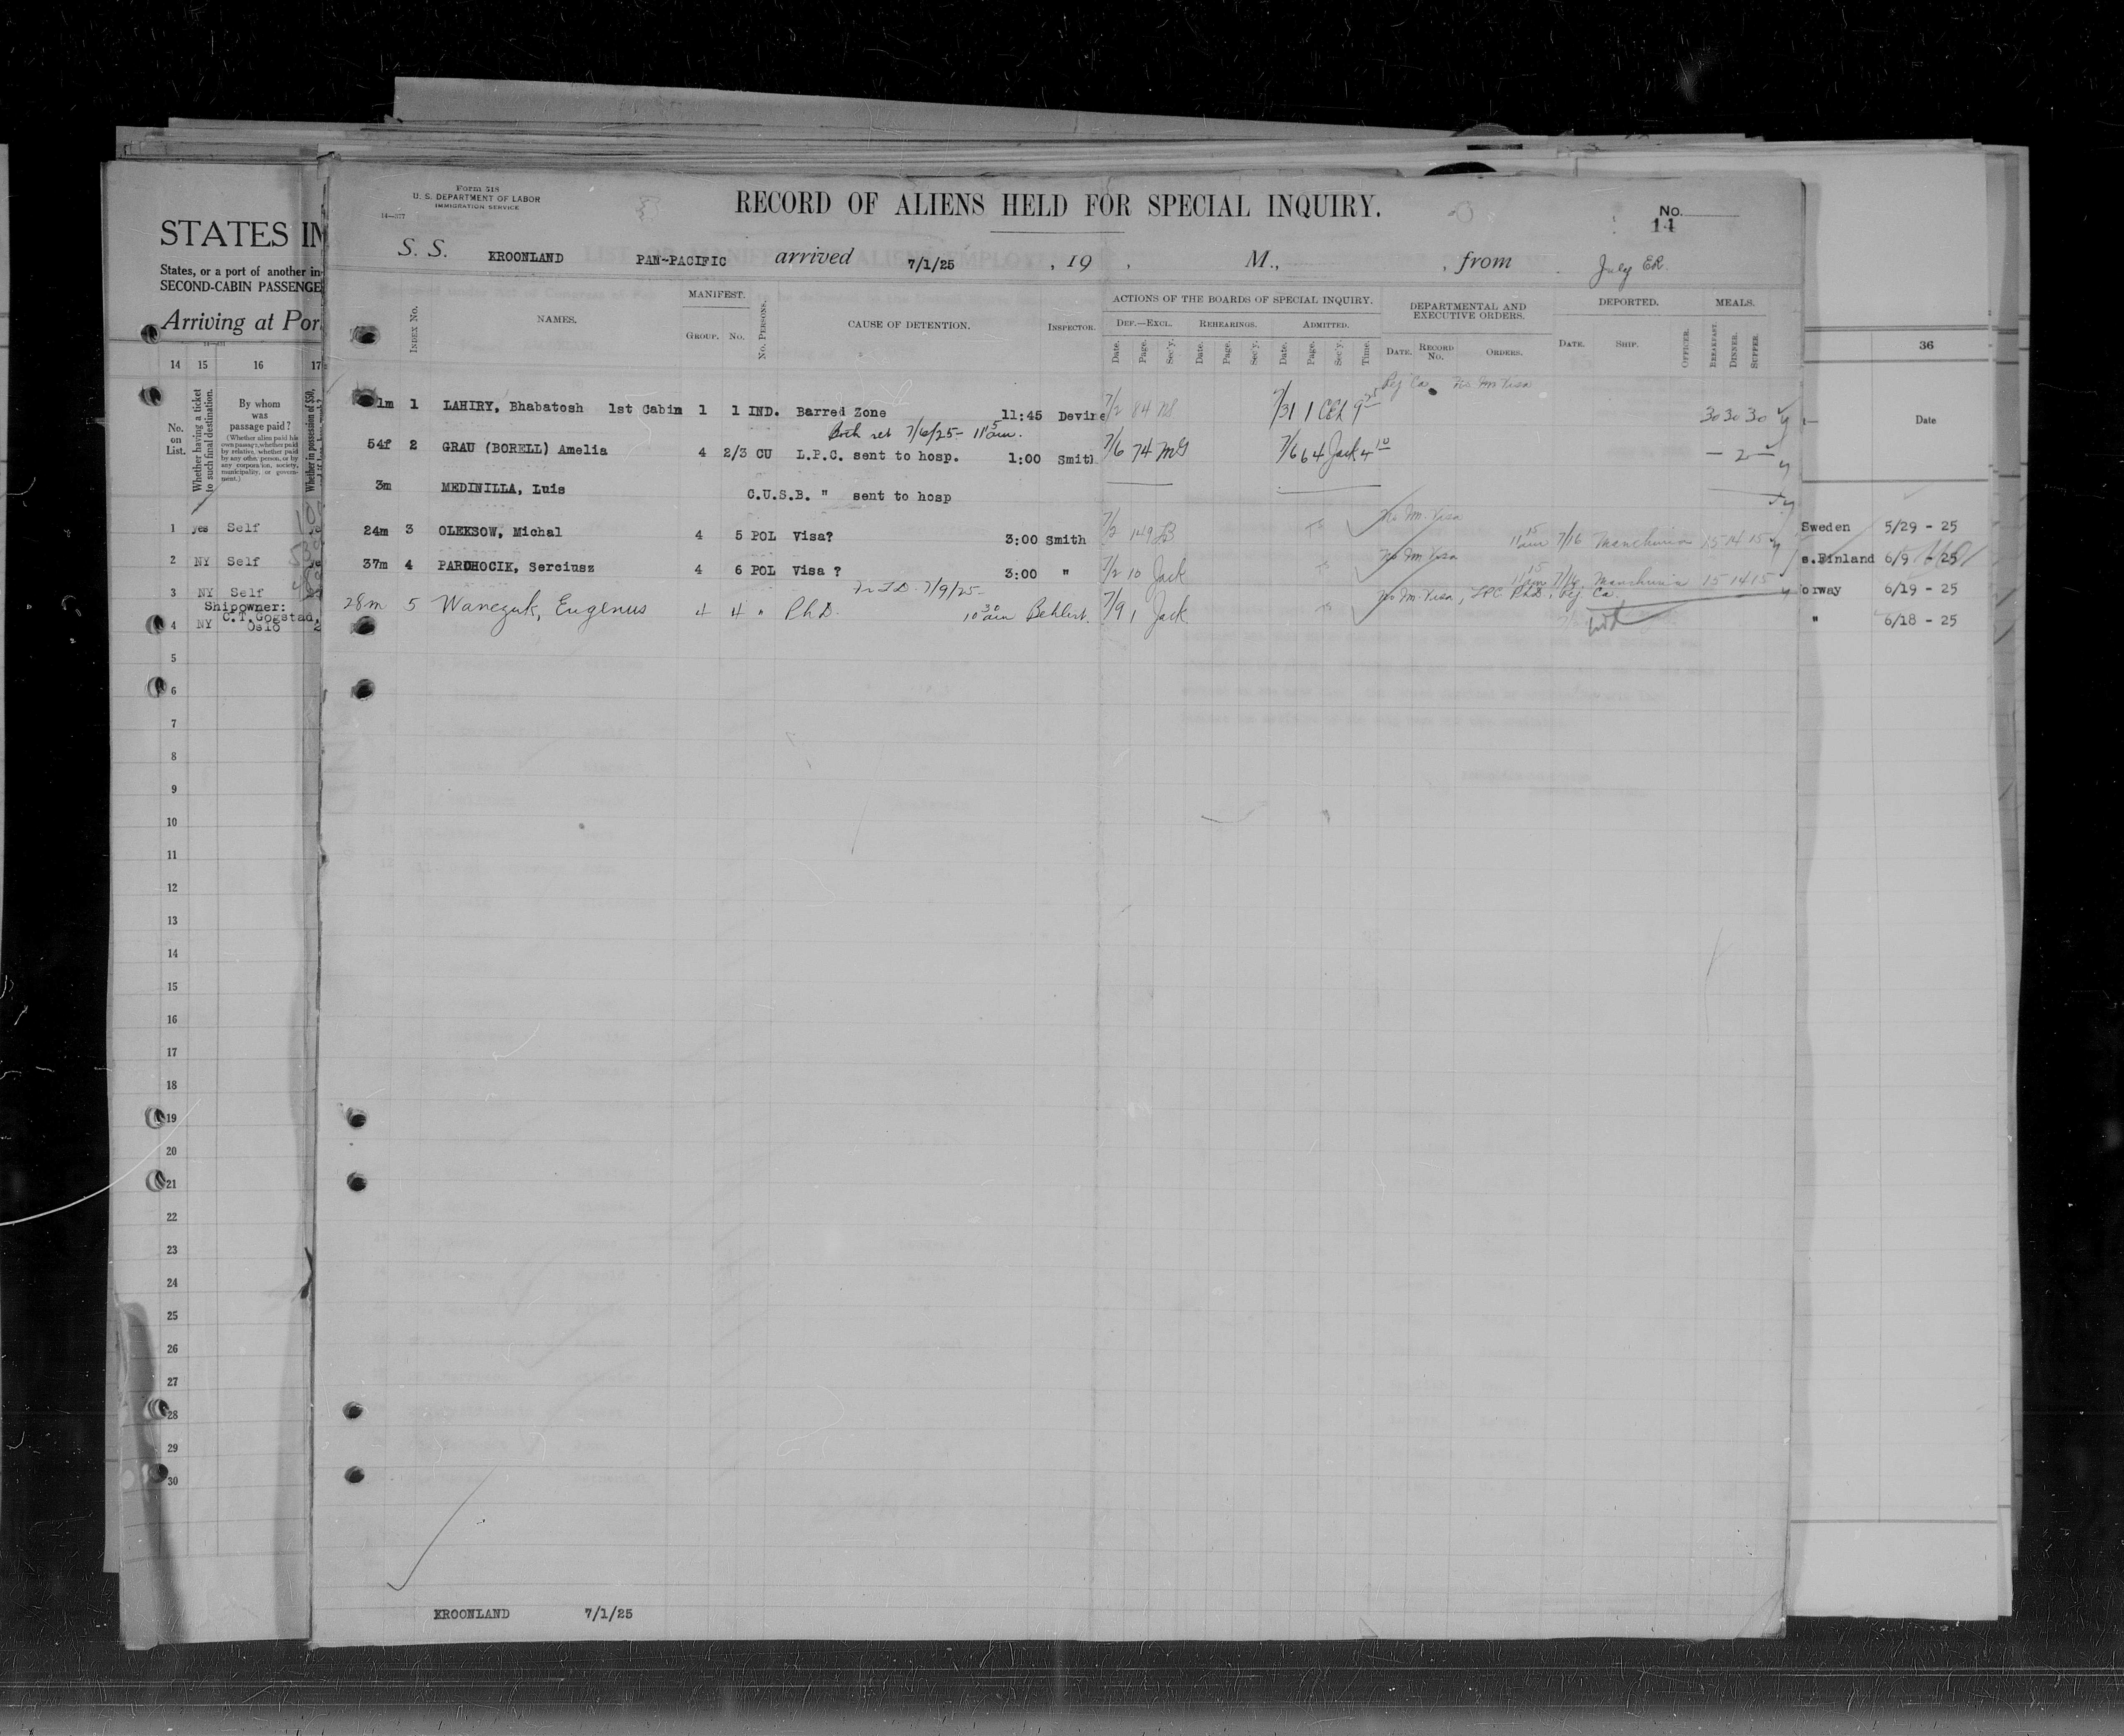 STATES IN
States, or a port of another in-
SECOND-CABIN PASSENGE
Arriving at Por
14 15 16 17
No. on List.
Whether having a ticket to such final destination.
By whom was passage paid?
(Whether alien paid his own passage, whether paid by relative, whether paid by any other person, or by any corporation, society, municipality, or government.)
Whether in possession of $50,
1 yes Self
2 NY Self
3 NY Self
Shipowner:
C.T. Gogstad,
4 NY Oslo 2
5
6
7
8
9
10
11
12
13
14
15
16
17
18
19
20
21
22
23
24
25
26
27
28
29
30
Form 518
U. S. DEPARTMENT OF LABOR
IMMIGRATION SERVICE
14—577
RECORD OF ALIENS HELD FOR SPECIAL INQUIRY.
No.
14
S. S. KROONLAND PAN-PACIFIC arrived 7/1/25 , 19 , M., , from July ER.
INDEX NO.
NAMES.
MANIFEST.
GROUP. NO.
NO. PERSONS.
CAUSE OF DETENTION.
INSPECTOR.
ACTIONS OF THE BOARDS OF SPECIAL INQUIRY.
DEF.—EXCL. REHEARINGS. ADMITTED.
Date. Page. Sec'y. Date. Page. Sec'y. Date. Page. Sec'y. Time.
DEPARTMENTAL AND EXECUTIVE ORDERS.
DATE. RECORD NO. ORDERS.
DEPORTED.
DATE. SHIP. OFFICER.
MEALS.
BREAKFAST. DINNER. SUPPER.
Rej Ca No Im Visa
1m 1 LAHIRY, Bhabatosh 1st Cabin 1 1 IND. Barred Zone 11:45 Devine 7/2 84 7/31 1 30 30 30
Both ret 7/6/25 - 11 15 am.
54f 2 GRAU (BORELL) Amelia 4 2/3 CU L.P.C. sent to hosp. 1:00 Smith 7/6 74 McG 7/6 64 Jack 4 10 — 2 —
3m MEDINILLA, Luis C.U.S.B. " sent to hosp
No Im. Visa
24m 3 OLEKSOW, Michal 4 5 POL Visa? 3:00 Smith 7/2 149 LB 11 15 am 7/16 Manchuria 15 14 15
No Im Visa
37m 4 PARDHOCIK, Serciusz 4 6 POL Visa ? 3:00 " 7/2 10 Jack 11 15 am 7/16 Manchuria 15 14 15
7/9/25-
28m 5 Wanezuk, Eugenus 4 4 " Ph.D. 10 30 am Behlert. 7/9 1 Jack No Im Visa, LPC PhD, Rej Ca.
KROONLAND 7/1/25
36
Date
Sweden 5/29 - 25
s.Finland 6/9 - 25
orway 6/19 - 25
" 6/18 - 25